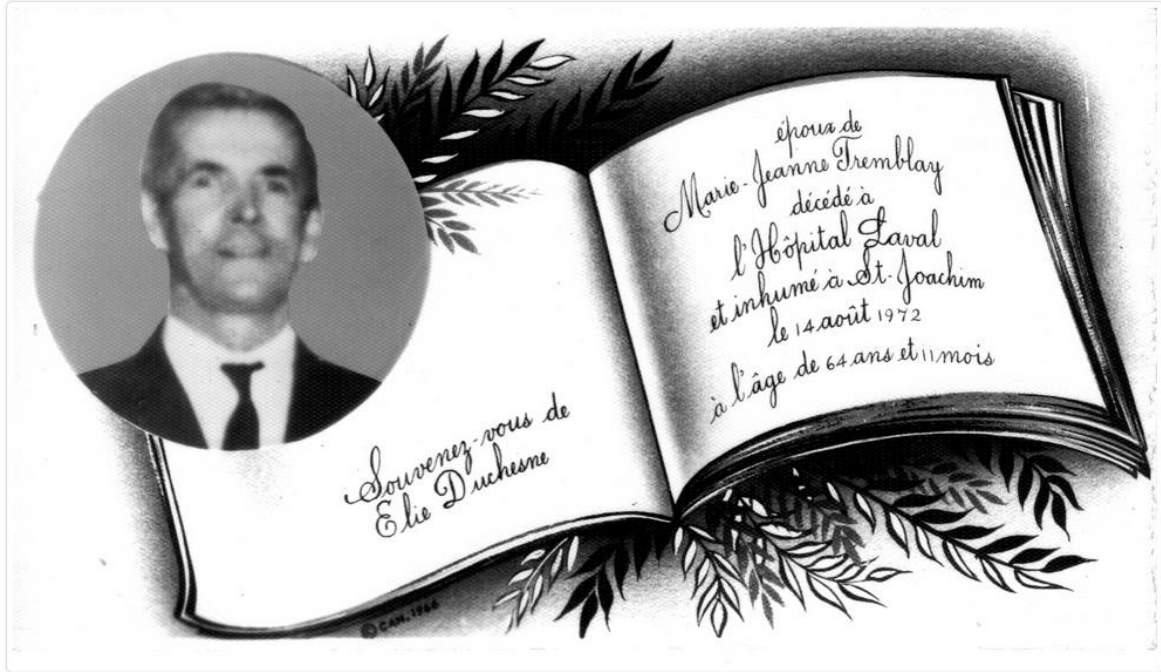 Souvenez-vous de
Elie Duchesne
époux de
Marie-Jeanne Tremblay
décédé à
l'Hôpital Laval
et inhumé à St-Joachim
le 14 août 1972
à l'âge de 64 ans et 11 mois
© CAN. 1966